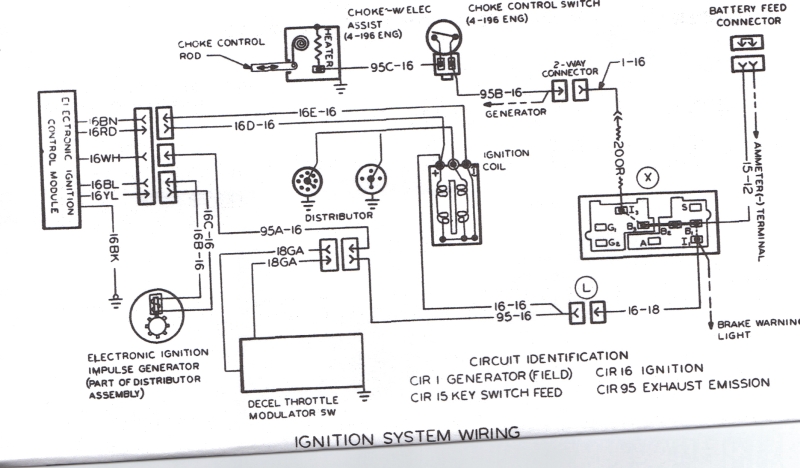 CHOKE-W/ELEC
ASSIST
(4-196 ENG)
CHOKE CONTROL SWITCH
(4-196 ENG)
BATTERY FEED
CONNECTOR
CHOKE CONTROL
ROD
HEATER
95C-16
2-WAY
CONNECTOR
1-16
95B-16
GENERATOR
ELECTRONIC IGNITION
CONTROL MODULE
16BN
16RD
16WH
16BL
16YL
16BK
16E-16
16D-16
16C-16
16B-16
DISTRIBUTOR
IGNITION
COIL
+
-
200R
X
15-12
AMMETER(-) TERMINAL
I3
S
G1
B3
B2
B1
G2
A
I1
95A-16
18GA
18GA
L
16-16
95-16
16-18
BRAKE WARNING
LIGHT
ELECTRONIC IGNITION
IMPULSE GENERATOR
(PART OF DISTRIBUTOR
ASSEMBLY)
DECEL THROTTLE
MODULATOR SW
CIRCUIT IDENTIFICATION
CIR 1 GENERATOR (FIELD)
CIR 16 IGNITION
CIR 15 KEY SWITCH FEED
CIR 95 EXHAUST EMISSION
IGNITION SYSTEM WIRING